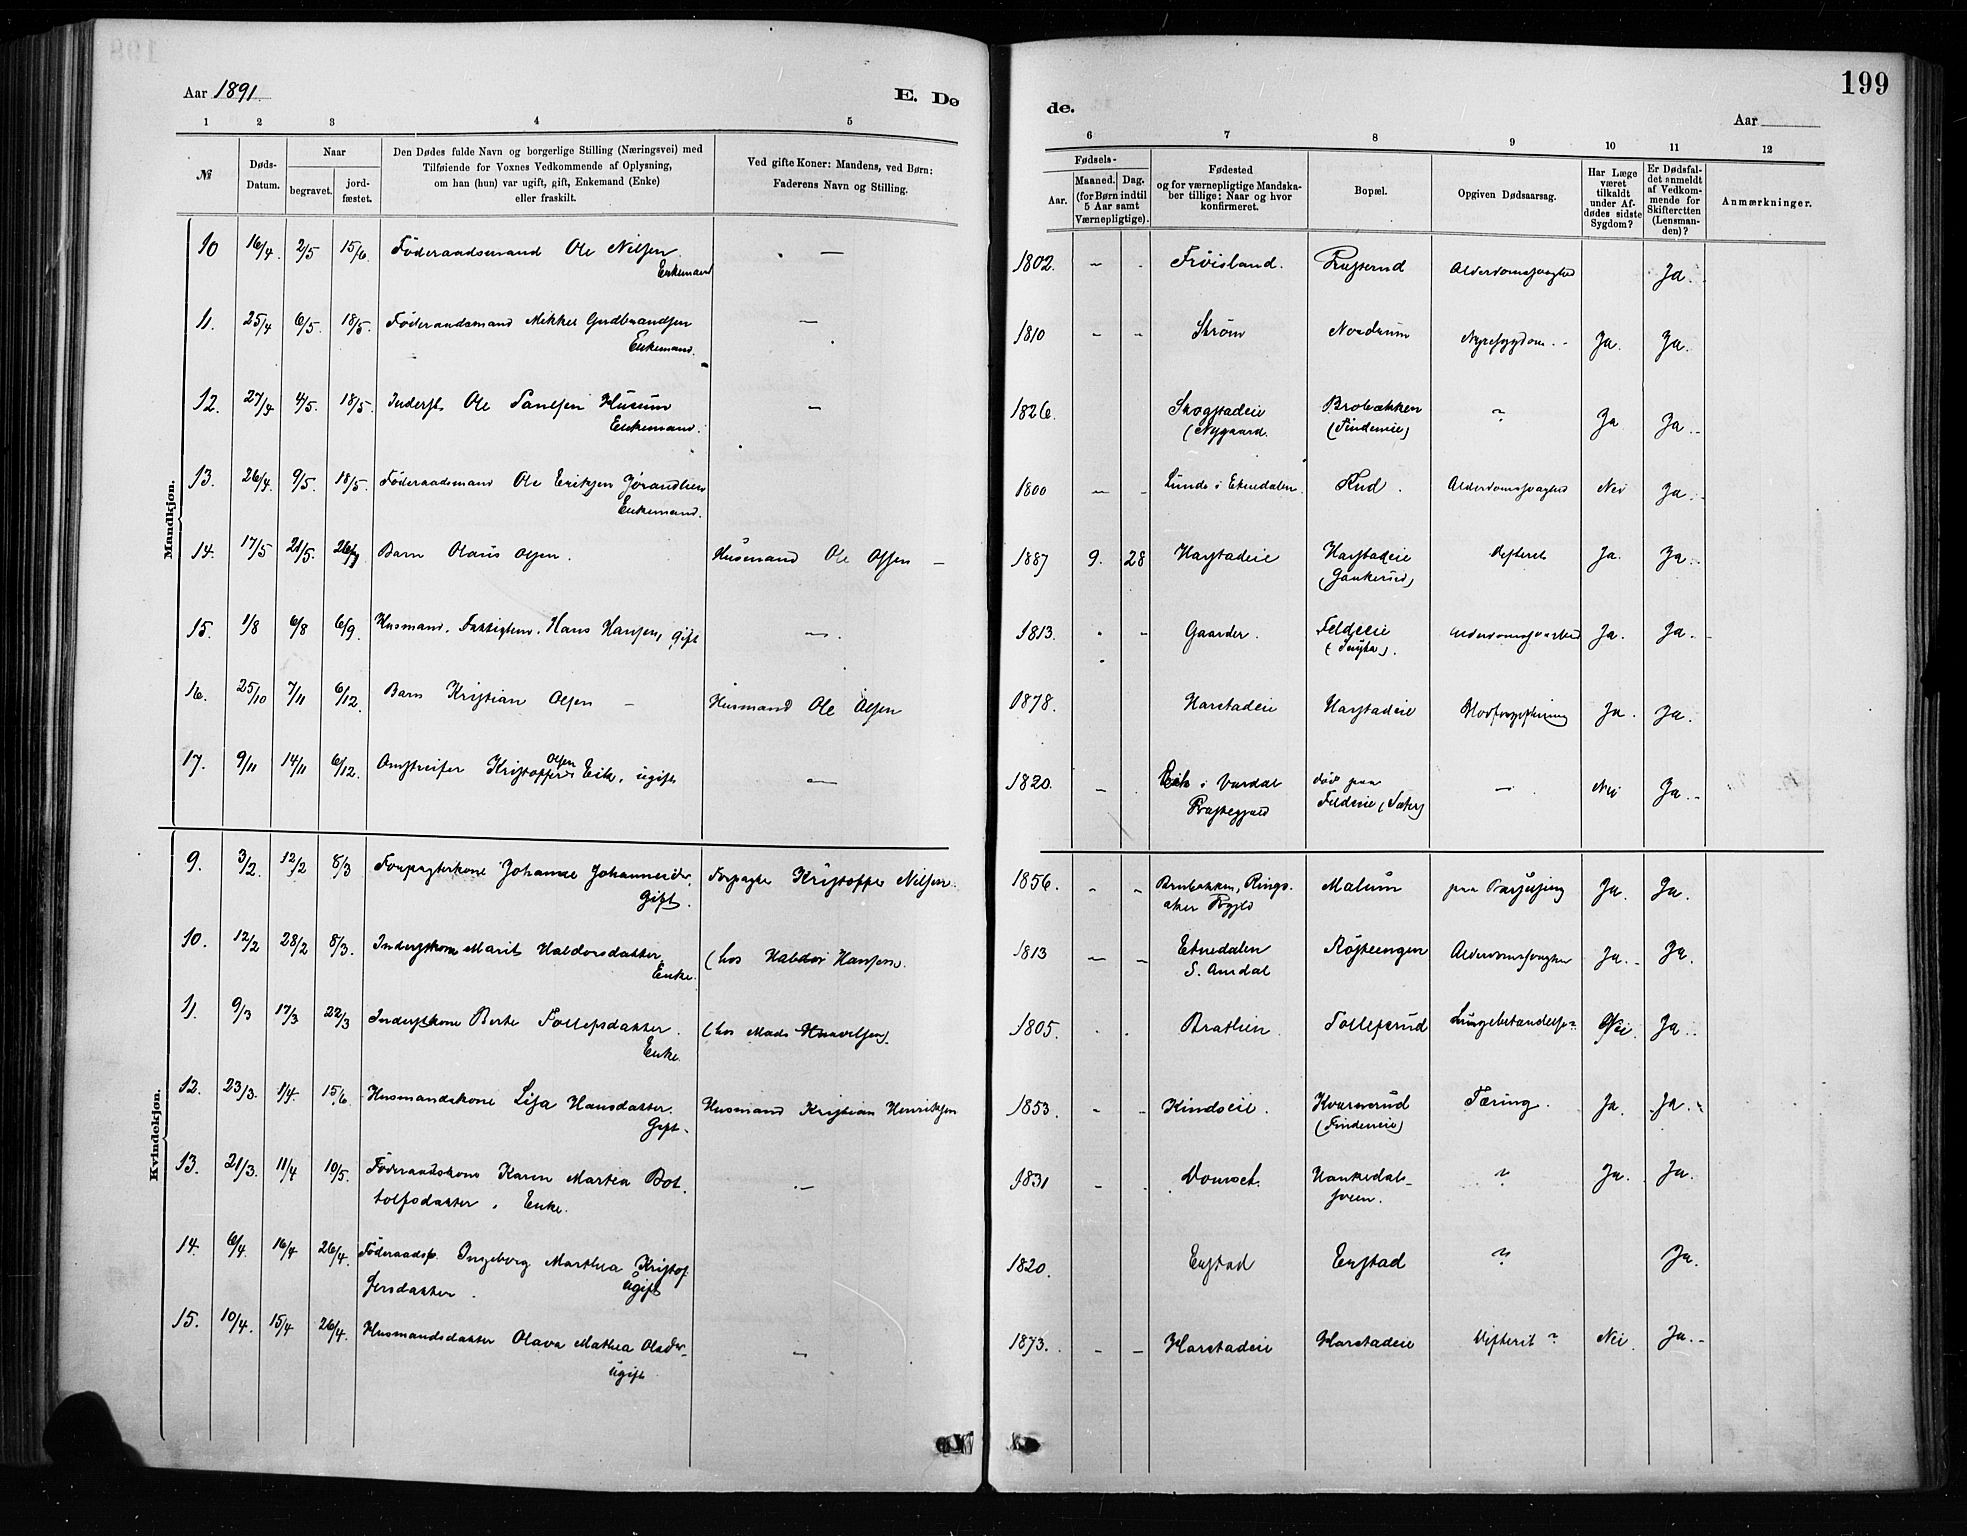 Aar 1891.
E. Dø
de.
199
Aar
1 2 3 4 5
6 7 8 9 10 11 12
№
Døds-Datum.
Naar
begravet.
jord-fæstet.
Den Dødes fulde Navn og borgerlige Stilling (Næringsvei) med
Tilføiende for Voxnes Vedkommende af Oplysning,
om han (hun) var ugift, gift, Enkemand (Enke)
eller fraskilt.
Ved gifte Koner: Mandens, ved Børn:
Faderens Navn og Stilling.
Fødsels-
Aar.
Maaned. Dag.
(for Børn indtil
5 Aar samt
Værnepligtige).
Fødested
og for værnepligtige Mandska-
ber tillige; Naar og hvor
konfirmeret.
Bopæl.
Opgiven Dødsaarsag.
Har Læge
været
tilkaldt
under Af-
dødes sidste
Sygdom?
Er Dødsfal-
det anmeldt
af Vedkom-
mende for
Skifteretten
(Lensman-
den)?
Anmærkninger.
Mandkjøn.
10 16/4. 2/5 15/6 Föderaadsmand Ole Nilsen. — 1802. — Frøisland. Alderdomssvaghed Ja.
Enkemand
11. 25/4 6/5. 18/5. Föderaadsmand Mikkel Gudbrandsen — 1810 — — Strøm Nordrum Nyresygdom. Ja. Ja.
Enkemand.
12. 27/4 4/5. 18/5. Inderst Ole Paulsen Husum — 1826. Skogstadeie Brobækken ? Ja Ja.
Enkemand. (Nygaard. (Findeneie)
13. 26/4. 9/5. 18/5. Föderaadsmand Ole Eriksen Jørandlien 1800 — — Lunde i Etnedalen Hud. Alderdomssvaghed Nei Ja.
Enkemand.
14. 17/5 21/5. Barn Olaus Olsen. Husmand Ole Olsen — 1887 9. 28 Harstadeie Harstadeie Difterit Ja. Ja.
15. 1/8 6/8 6/9. Husmand. Fattiglem. Hans Hansen, gift —. 1813. Gaarder. Feldeie Alderdomssvaghed Ja. Ja.
16. 25/10 7/11 6/12. Barn Kristian Olsen — Husmand Ole Olsen 1878. Harstadeie Harstadeie Ja. Ja.
17. 9/11 14/11 6/12. Omstreifer Kristoffer Olsen Eik, ugift — 1820. — Eik i Vardal død paa — Nei Ja.
Præstegjeld Feldeie
Kvindekjøn.
9. 3/2. 12/2 8/3 Forpagterkone Johanne Johannesdr, Forpagter Kristoffer Nilsen. 1856. Brubakken, Rings- Malum paa Barselseng Ja. Ja.
Gift. aker Prgjld
10. 12/2 28/2 8/3. Inderstkone Marit Haldorsdatter, (hos Haldor Hansen. 1813 — — Etnedalen Røsteengen Ja. Ja.
Enke. S. Aurdal
11. 9/3 17/3 22/3 Inderstkone Berte Tollefsdatter. (hos Mads 1805. Bratlien. Tollefsrud Lungebetændelse? Nei. Ja.
Enke.
12. 23/3. 1/4. 15/6. Husmandskone Lisa Hansdatter. Husmand Kristian Henriksen 1853. Kindseie. Kvarnerud Tæring. Ja. Ja.
Gift. (Findeneie)
13. 21/3. 11/4 10/5. Föderaadskone Karen Martea Bot- — 1831 Domset. Hankedals- ? Ja. Ja.
tolfsdatter, Enke. sveen.
14. 6/4. 16/4 26/4. Föderaadsp. Ingeborg Marthea Kristof- 1820. Enstad Enstad ? Ja.
fersdatter. ugift
15. 10/4. 15/4 26/4. Husmandsdatter Olava Mathea Olsdr, — 1873. — — Harstadeie Harstadeie Difterit ? Nei. Ja.
ugift